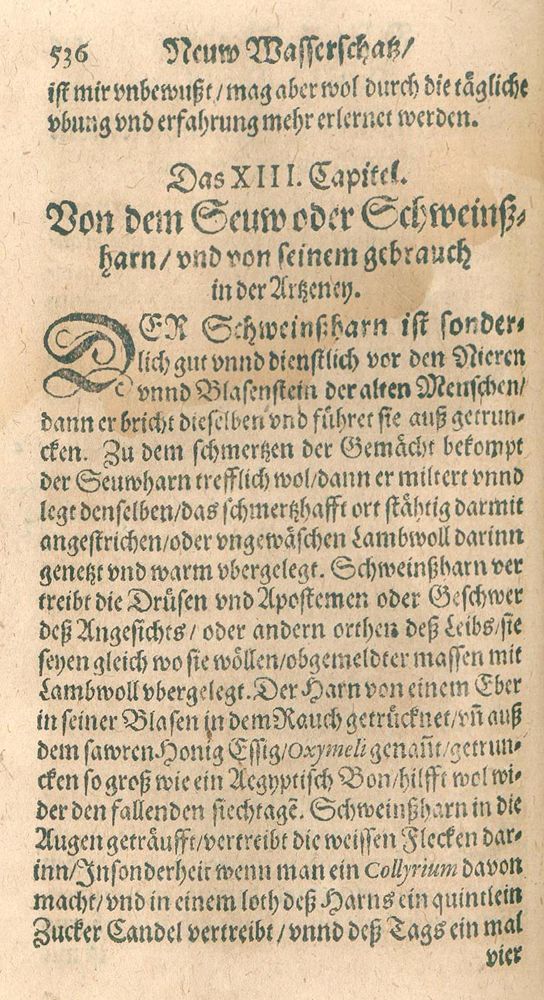 536 Neuw Wasserschatz/
ist mir vnbewußt/mag aber wol durch die tägliche
vbung vnd erfahrung mehr erlernet werden.
Das XIII. Capitel.
Von dem Seuw oder Schweinß-
harn/vnd von seinem gebrauch
in der Artzeney.
DER Schweinßharn ist sonder-
lich gut vnnd dienstlich vor den Nieren
vnnd Blasenstein der alten Menschen/
dann er bricht dieselben vnd führet sie auß getrun-
cken. Zu dem schmertzen der Gemächt bekompt
der Seuwharn trefflich wol/dann er miltert vnnd
legt denselben/das schmertzhafft ort stähtig darmit
angestrichen/oder vngewäschen Lambwoll darinn
genetzt vnd warm vbergelegt. Schweinßharn ver
treibt die Drüsen vnd Apostemen oder Geschwer
deß Angesichts/ oder andern orthen deß Leibs/sie
seyen gleich wo sie wöllen/obgemeldter massen mit
Lambwoll vbergelegt. Der Harn von einem Eber
in seiner Blasen in dem Rauch getrücknet/vñ auß
dem sawren Honig Essig/Oxymeli genañt/getrun-
cken so groß wie ein Aegyptisch Bon/hilfft wol wi-
der den fallenden siechtagẽ. Schweinßharn in die
Augen geträufft/vertreibt die weissen Flecken dar-
inn/Insonderheit wenn man ein Collyrium davon
macht/vnd in einem loth deß Harns ein quintlein
Zucker Candel vertreibt/vnnd deß Tags ein mal
vier